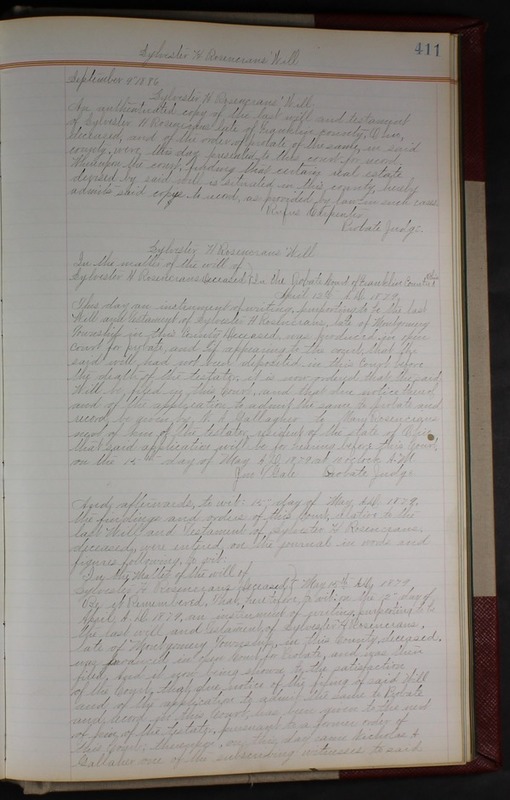 411
Sylvester H Rosencrans' Will
September 9" 1886
Sylvester H. Rosencrans' Will
An authenticated copy of the last will and testament
of Sylvester H Rosencrans late of Franklin county, Ohio,
deceased, and of the order of probate of the same, in said
county, were, this day presented to this court for record
Whereupon the court, finding that certain real estate
devised by said will, is situated in this county, hereby
admits said copys to record, as provided by law in such cases.
Rufus Carpenter,
Probate Judge.
Sylvester H Rosencrans' Will
In the matter of the will of
Sylvester H. Rosencrans Deceased In the Probate Court of Franklin County Ohio
April 12th A.D. 1879.
This day an instrument of writing, purporting to be the last
Will and testament of Sylvester H Rosencrans, late of Montgomery
Township in this County Deceased, was produced in open
Court for probate, and it appearing to the court, that the
said will had not been deposited in this Court before
the death of the testator, it is now ordered that the said
Will be filed in this Court, and that due notice thereof
and of the application to admit the same to probate and
record be given, by N. A. Gallagher to Mary Rosencrans
next of kin of the testator, resident of the state of Ohio
that said application will be for hearing before this Court,
on the 15" day of May A.D. 1879 at 9 o'clock A.M
Jno. T. Gale Probate Judge
And afterwards, to wit: 15" day of May, A.D. 1879,
the findings and orders of this Court, relative to the
last Will and Testament of Sylvester H Rosencrans,
deceased, were entered on the journal in words and
figures following, to wit:
In the Matter of the will of
Sylvester H Rosencrans deceased May 15th A.D. 1879.
Be it Remembered, that heretofore, to wit: on the 12" day of
April A.D. 1879, an instrument of writing, purporting to be
the last will and testament, of Sylvester H Rosencrans,
late of Montgomery Township, in this County, deceased,
was produced in open Court for Probate, and was then
filed, And it now being shown to the satisfaction
of the Court, that due notice of the filing of said Will
and of the application to admit the same to Probate
and record in this Court, has been given to the next
of kin of the testator, pursuant to a former order of
this Court; thereupon, on this day came Nicholas A
Gallaher one of the subscribing witnesses to said